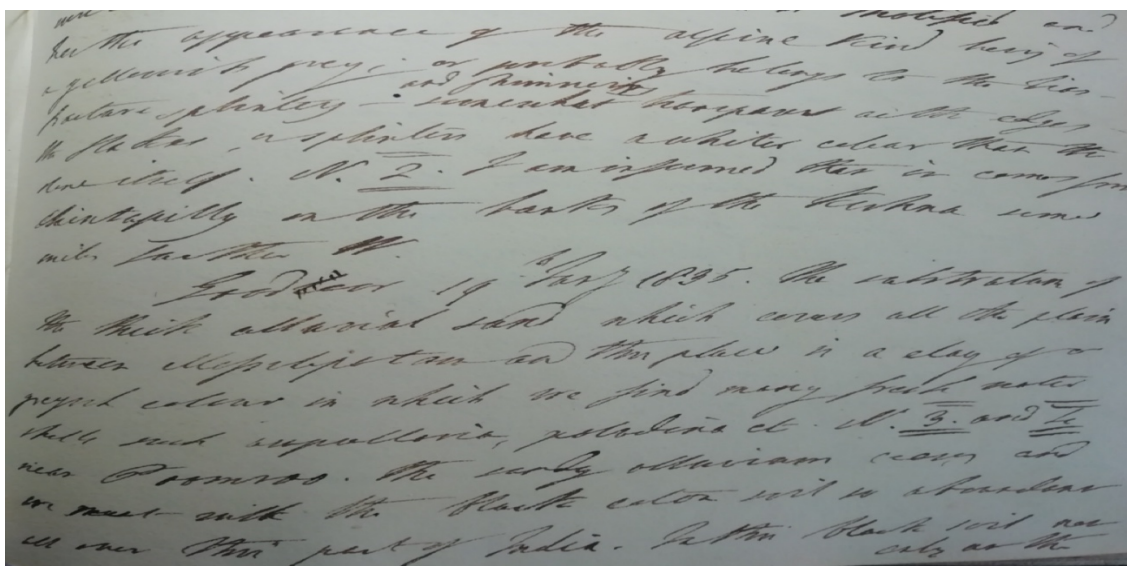 and
has the appearance of the alpine kind being of
a yellowish grey; or probably belongs to the lias
fracture splintery and shining somewhat transparent at the edges
the flakes, or splinters have a whiter colour than the
stone itself. N. 2. I am informed that it comes from
chintapilly on the banks of the Kishna some
miles farther W.
19th Jany 1835. The substratum of
the thick alluvial sand which covers all the plain
between and this place is a clay of a
greyish colour in which we find many fresh water
shells such ampullaria, paludina et. N. 3. and 4.
near . The sandy alluvium ceases and
we meet with the black cotton soil so abundant
all over this part of India. In this black soil
only as the